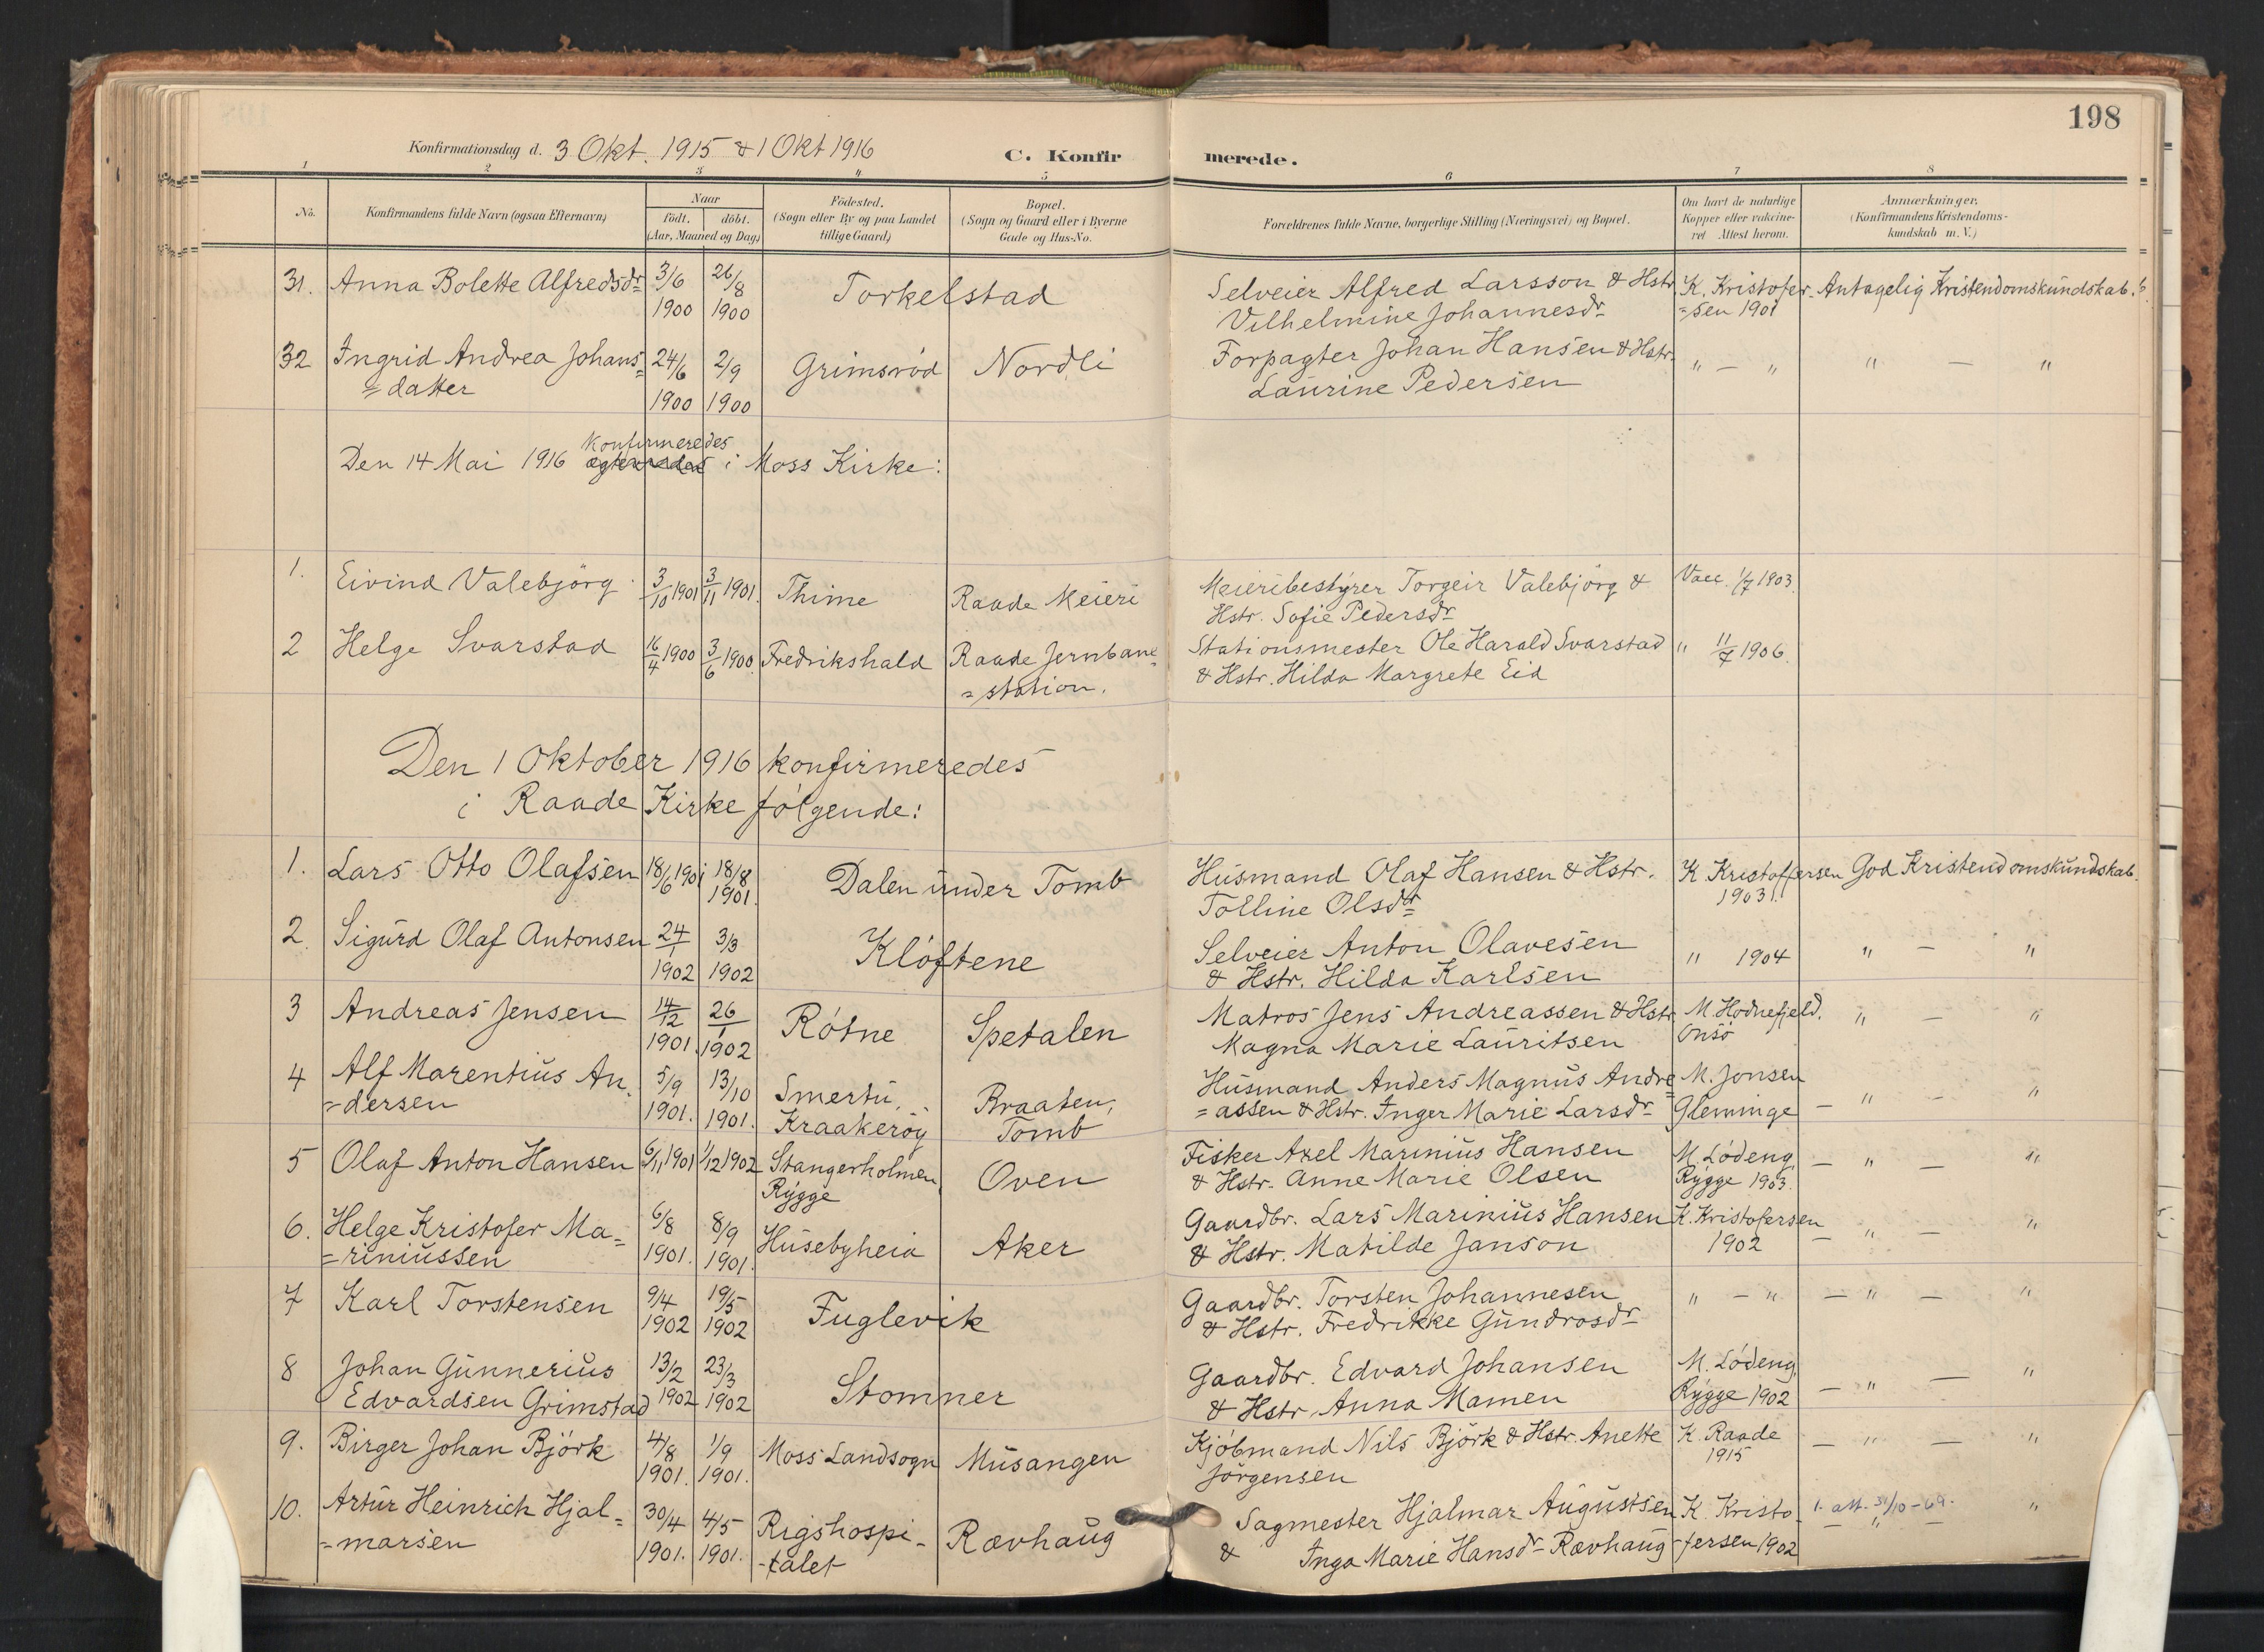 198
Konfirmationsdag d. 3 Okt. 1915 & 1 Okt 1916
C. Konfirmerede.
1 2 3 4 5 6 7 8
No.
Konfirmandens fulde Navn (ogsaa Efternavn)
Naar
födt. döbt.
(Aar, Maaned og Dag)
Födested.
(Sogn eller By og paa Landet
tillige Gaard)
Bopæl.
(Sogn og Gaard eller i Byerne
Gade og Hus-No.
Forældrenes fulde Navne, borgerlige Stilling (Næringsvei) og Bopæl.
Om havt de naturlige
Kopper eller vakcine-
ret Attest herom.
Anmærkninger.
(Konfirmandens Kristendoms-
kundskab m. V.)
31. Anna Bolette Alfredsdr 3/6 1900 26/8 1900 Torkelstad Selveier Alfred Larsson & Hstr. K. Kristofer- Antagelig Kristendomskundskab.
Vilhelmine Johannesdr =sen 1901
32 Ingrid Andrea Johans= 24/6 1900 2/9 1900 Grimsröd Nordli Forpagter Johan Hansen & Hstr. " — " " — "
=datter Laurine Pedersen
Konfirmeredes
Den 14 Mai 1916 i Moss Kirke:
1. Eivind Valebjörg 3/10 1901 3/11 1901. Thime Raade Meieri Meieribestyrer Torgeir Valebjörg & Vacc. 1/7 1903.
Hstr. Sofie Pedersdr
2 Helge Svarstad 16/4 1900 3/6 1900. Fredrikshald Raade Jernbane= Stationsmester Ole Harald Svarstad " 11/7 1906.
=station. & Hstr. Hilda Margrete Eid
Den 1 Oktober 1916 konfirmeredes
i Raade Kirke fölgende:
1. Lars Otto Olafsen 18/6 1901 18/8 1901. Dalen under Tomb Husmand Olaf Hansen & Hstr. K Kristoffersen God Kristendomskundskab.
Tolline Olsdtr 1903.
2. Sigurd Olaf Antonsen 24/1 1902 3/3 1902 Klöftene Selveier Anton Olavesen " 1904 " — "
& Hstr. Hilda Karlsen
3 Andreas Jensen 14/12 1901. 26/1 1902 Rötne Spetalen Matros Jens Andreassen & Hstr. M. Hodnefjeld. " — "
Magna Marie Lauritsen Onsö
4 Alf Marentius An= 5/9 1901. 13/10 1901. Smertu, Braaten, Husmand Anders Magnus Andre= M. Jonsen
=dersen Kraakeröy Tomb =assen & Hstr. Inger Marie Larsdr Glemminge — " — "
5 Olaf Anton Hansen 6/11 1901 1/12 1902 Stangerholmen, Oven Fisker Axel Marinius Hansen M. Lödeng, — " — "
Rygge & Hstr. Anne Marie Olsen Rygge 1903.
6. Helge Kristofer Ma= 6/8 1901. 8/9 1901. Husebyheia Aker Gaardbr. Lars Marinius Hansen K. Kristofersen — " — "
=riniussen & Hstr. Matilde Janson 1902
7 Karl Torstensen 9/4 1902 19/5 1902 Fuglevik Gaardbr. Torsten Johannesen " — " — " — "
& Hstr. Fredrikke Gundrosdr
8 Johan Gunnerius 13/2 1902 23/3 1902 Stomner Gaardbr. Edvard Johansen M. Lödeng,
Edvardsen Grimstad & Hstr. Anna Mamen Rygge 1902 — " — "
9. Birger Johan Björk 4/8 1901. 1/9 1901. Moss Landsogn Musangen Kjöbmand Nils Björk & Hstr. Anette K. Raade — " — "
Jörgensen 1915
10. Artur Heinrich Hjal= 30/4 1901. 4/5 1901. Rigshospi- Rævhaug Sagmester Hjalmar Augustsen K. Kristo- 1. att. 31/10-69.
=marsen -talet & Inga Marie Hansdr Rævhaug -fersen 1902 — " — "